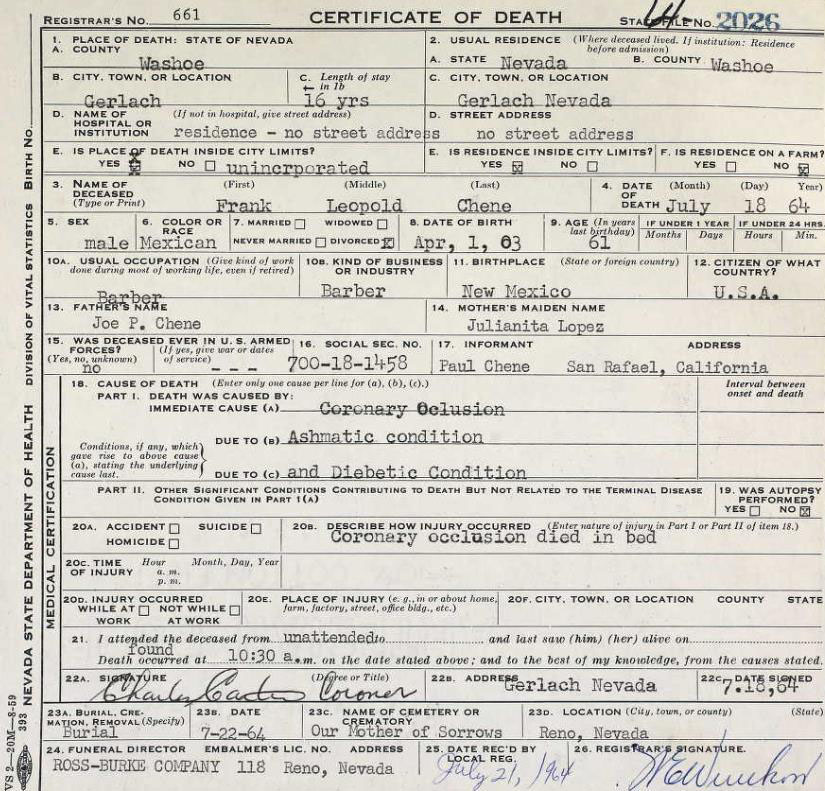 REGISTRAR'S NO. 661 CERTIFICATE OF DEATH STATE FILE NO. 2026
1. PLACE OF DEATH: STATE OF NEVADA 2. USUAL RESIDENCE (Where deceased lived. If institution: Residence before admission)
A. COUNTY Washoe A. STATE Nevada B. COUNTY Washoe
B. CITY, TOWN, OR LOCATION C. Length of stay in 1b C. CITY, TOWN, OR LOCATION
Gerlach 16 yrs Gerlach Nevada
D. NAME OF HOSPITAL OR INSTITUTION (If not in hospital, give street address) D. STREET ADDRESS
residence - no street address no street address
E. IS PLACE OF DEATH INSIDE CITY LIMITS? E. IS RESIDENCE INSIDE CITY LIMITS? F. IS RESIDENCE ON A FARM?
YES NO unincrporated YES NO YES NO
3. NAME OF DECEASED (Type or Print) (First) (Middle) (Last) 4. DATE OF DEATH (Month) (Day) Year)
Frank Leopold Chene July 18 64
5. SEX 6. COLOR OR RACE 7. MARRIED WIDOWED NEVER MARRIED DIVORCED 8. DATE OF BIRTH 9. AGE (In years last birthday) IF UNDER 1 YEAR Months Days IF UNDER 24 HRS. Hours Min.
male Mexican Apr, 1, 03 61
10A. USUAL OCCUPATION (Give kind of work done during most of working life, even if retired) 10B. KIND OF BUSINESS OR INDUSTRY 11. BIRTHPLACE (State or foreign country) 12. CITIZEN OF WHAT COUNTRY?
Barber Barber New Mexico U.S.A.
13. FATHER'S NAME 14. MOTHER'S MAIDEN NAME
Joe P. Chene Julianita Lopez
15. WAS DECEASED EVER IN U.S. ARMED FORCES? (Yes, no, unknown) (If yes, give war or dates of service) 16. SOCIAL SEC. NO. 17. INFORMANT ADDRESS
no - - - 700-18-1458 Paul Chene San Rafael, California
18. CAUSE OF DEATH (Enter only one cause per line for (a), (b), (c).) Interval between onset and death
PART I. DEATH WAS CAUSED BY:
IMMEDIATE CAUSE (A) Coronary Oclusion
Conditions, if any, which gave rise to above cause (a), stating the underlying cause last.
DUE TO (B) Ashmatic condition
DUE TO (C) and Diebetic Condition
PART II. OTHER SIGNIFICANT CONDITIONS CONTRIBUTING TO DEATH BUT NOT RELATED TO THE TERMINAL DISEASE CONDITION GIVEN IN PART 1(A) 19. WAS AUTOPSY PERFORMED? YES NO
20A. ACCIDENT SUICIDE HOMICIDE 20B. DESCRIBE HOW INJURY OCCURRED (Enter nature of injury in Part I or Part II of item 18.)
Coronary occlusion died in bed
20C. TIME OF INJURY Hour a. m. p. m. Month, Day, Year
20D. INJURY OCCURRED WHILE AT WORK NOT WHILE AT WORK 20E. PLACE OF INJURY (e. g., in or about home, farm, factory, street, office bldg., etc.) 20F. CITY, TOWN, OR LOCATION COUNTY STATE
21. I attended the deceased from unattended to and last saw (him) (her) alive on
found
Death occurred at 10:30 a.m. on the date stated above; and to the best of my knowledge, from the causes stated.
22A. SIGNATURE (Degree or Title) 22B. ADDRESS 22C. DATE SIGNED
Charles Carter Coroner Gerlach Nevada 7.18,64
23A. BURIAL, CREMATION, REMOVAL (Specify) 23B. DATE 23C. NAME OF CEMETERY OR CREMATORY 23D. LOCATION (City, town, or county) (State)
Burial 7-22-64 Our Mother of Sorrows Reno, Nevada
24. FUNERAL DIRECTOR EMBALMER'S LIC. NO. ADDRESS 25. DATE REC'D BY LOCAL REG. 26. REGISTRAR'S SIGNATURE.
ROSS-BURKE COMPANY 118 Reno, Nevada July 21, 1964
VS 2—20M—8-59 393 NEVADA STATE DEPARTMENT OF HEALTH DIVISION OF VITAL STATISTICS BIRTH NO.
MEDICAL CERTIFICATION